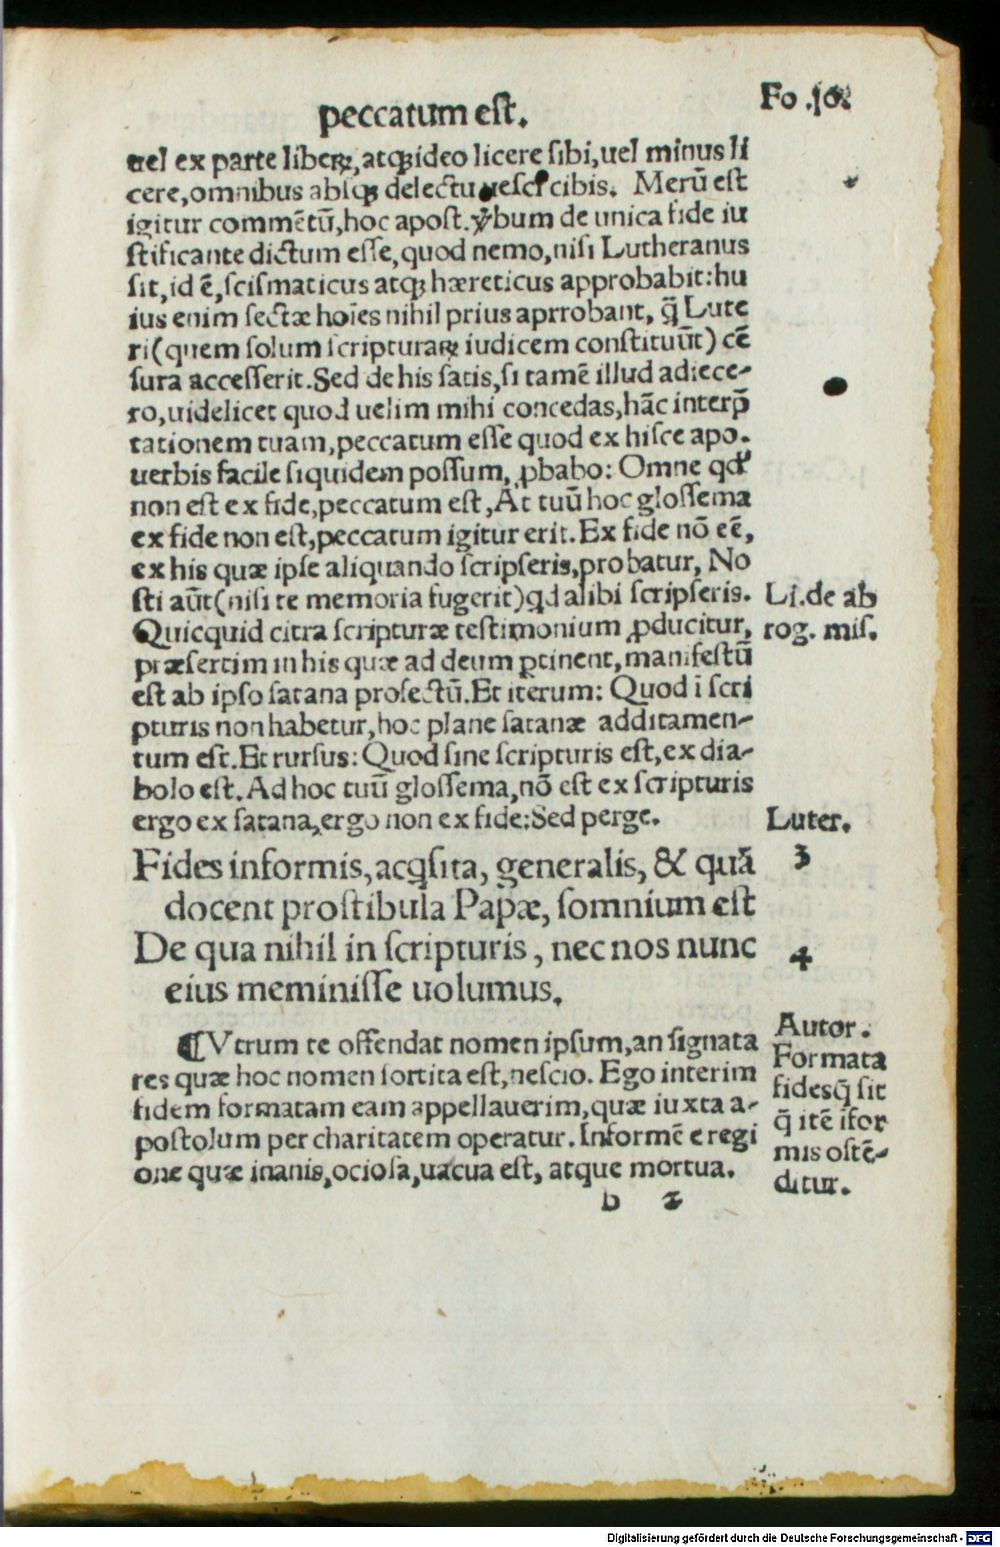 peccatum est.
Fo .10.
uel ex parte liberꝝ, atqꝫ ideo licere sibi, uel minus li
cere, omnibus absqꝫ delectu uesci cibis. Merū est
igitur commētū, hoc apost. ꝟbum de unica fide iu
stificante dictum esse, quod nemo, nisi Lutheranus
sit, id ē, scismaticus atqꝫ hæreticus approbabit: hu
ius enim sectæ hoīes nihil prius aprrobant, q̄ Lute
ri (quem solum scripturaꝝ iudicem constituūt) cē
sura accesserit. Sed de his satis, si tamē illud adiece-
ro, uidelicet quod uelim mihi concedas, hāc interp̄
tationem tuam, peccatum esse quod ex hisce apo.
uerbis facile siquidem possum, ꝓbabo: Omne qd'
non est ex fide, peccatum est, At tuū hoc glossema
ex fide non est, peccatum igitur erit. Ex fide nō eē,
ex his quæ ipse aliquando scripseris, probatur, No
sti aūt (nisi te memoria fugerit) qd alibi scripseris.
Li. de ab
Quicquid citra scripturæ testimonium ꝓducitur,
rog. mis.
præsertim in his quæ ad deum ꝑtinent, manifestū
est ab ipso satana profectū. Et iterum: Quod ī scri
pturis non habetur, hoc plane satanæ additamen-
tum est. Et rursus: Quod sine scripturis est, ex dia-
bolo est. Ad hoc tuū glossema, nō est ex scripturis
ergo ex satana, ergo non ex fide: Sed perge.
Luter.
Fides informis, acq̃sita, generalis, & quā
3
docent prostibula Papæ, somnium est
De qua nihil in scripturis, nec nos nunc
4
eius meminisse uolumus.
¶Vtrum te offendat nomen ipsum, an signata
res quæ hoc nomen sortita est, nescio. Ego interim
fidem formatam eam appellauerim, quæ iuxta a-
postolum per charitatem operatur. Informē e regi
one quæ inanis, ociosa, uacua est, atque mortua.
Autor.
Formata
fides q̄ sit
q̄ itē īfor
mis ostē-
ditur.
b 2
Digitalisierung gefördert durch die Deutsche Forschungsgemeinschaft - DFG